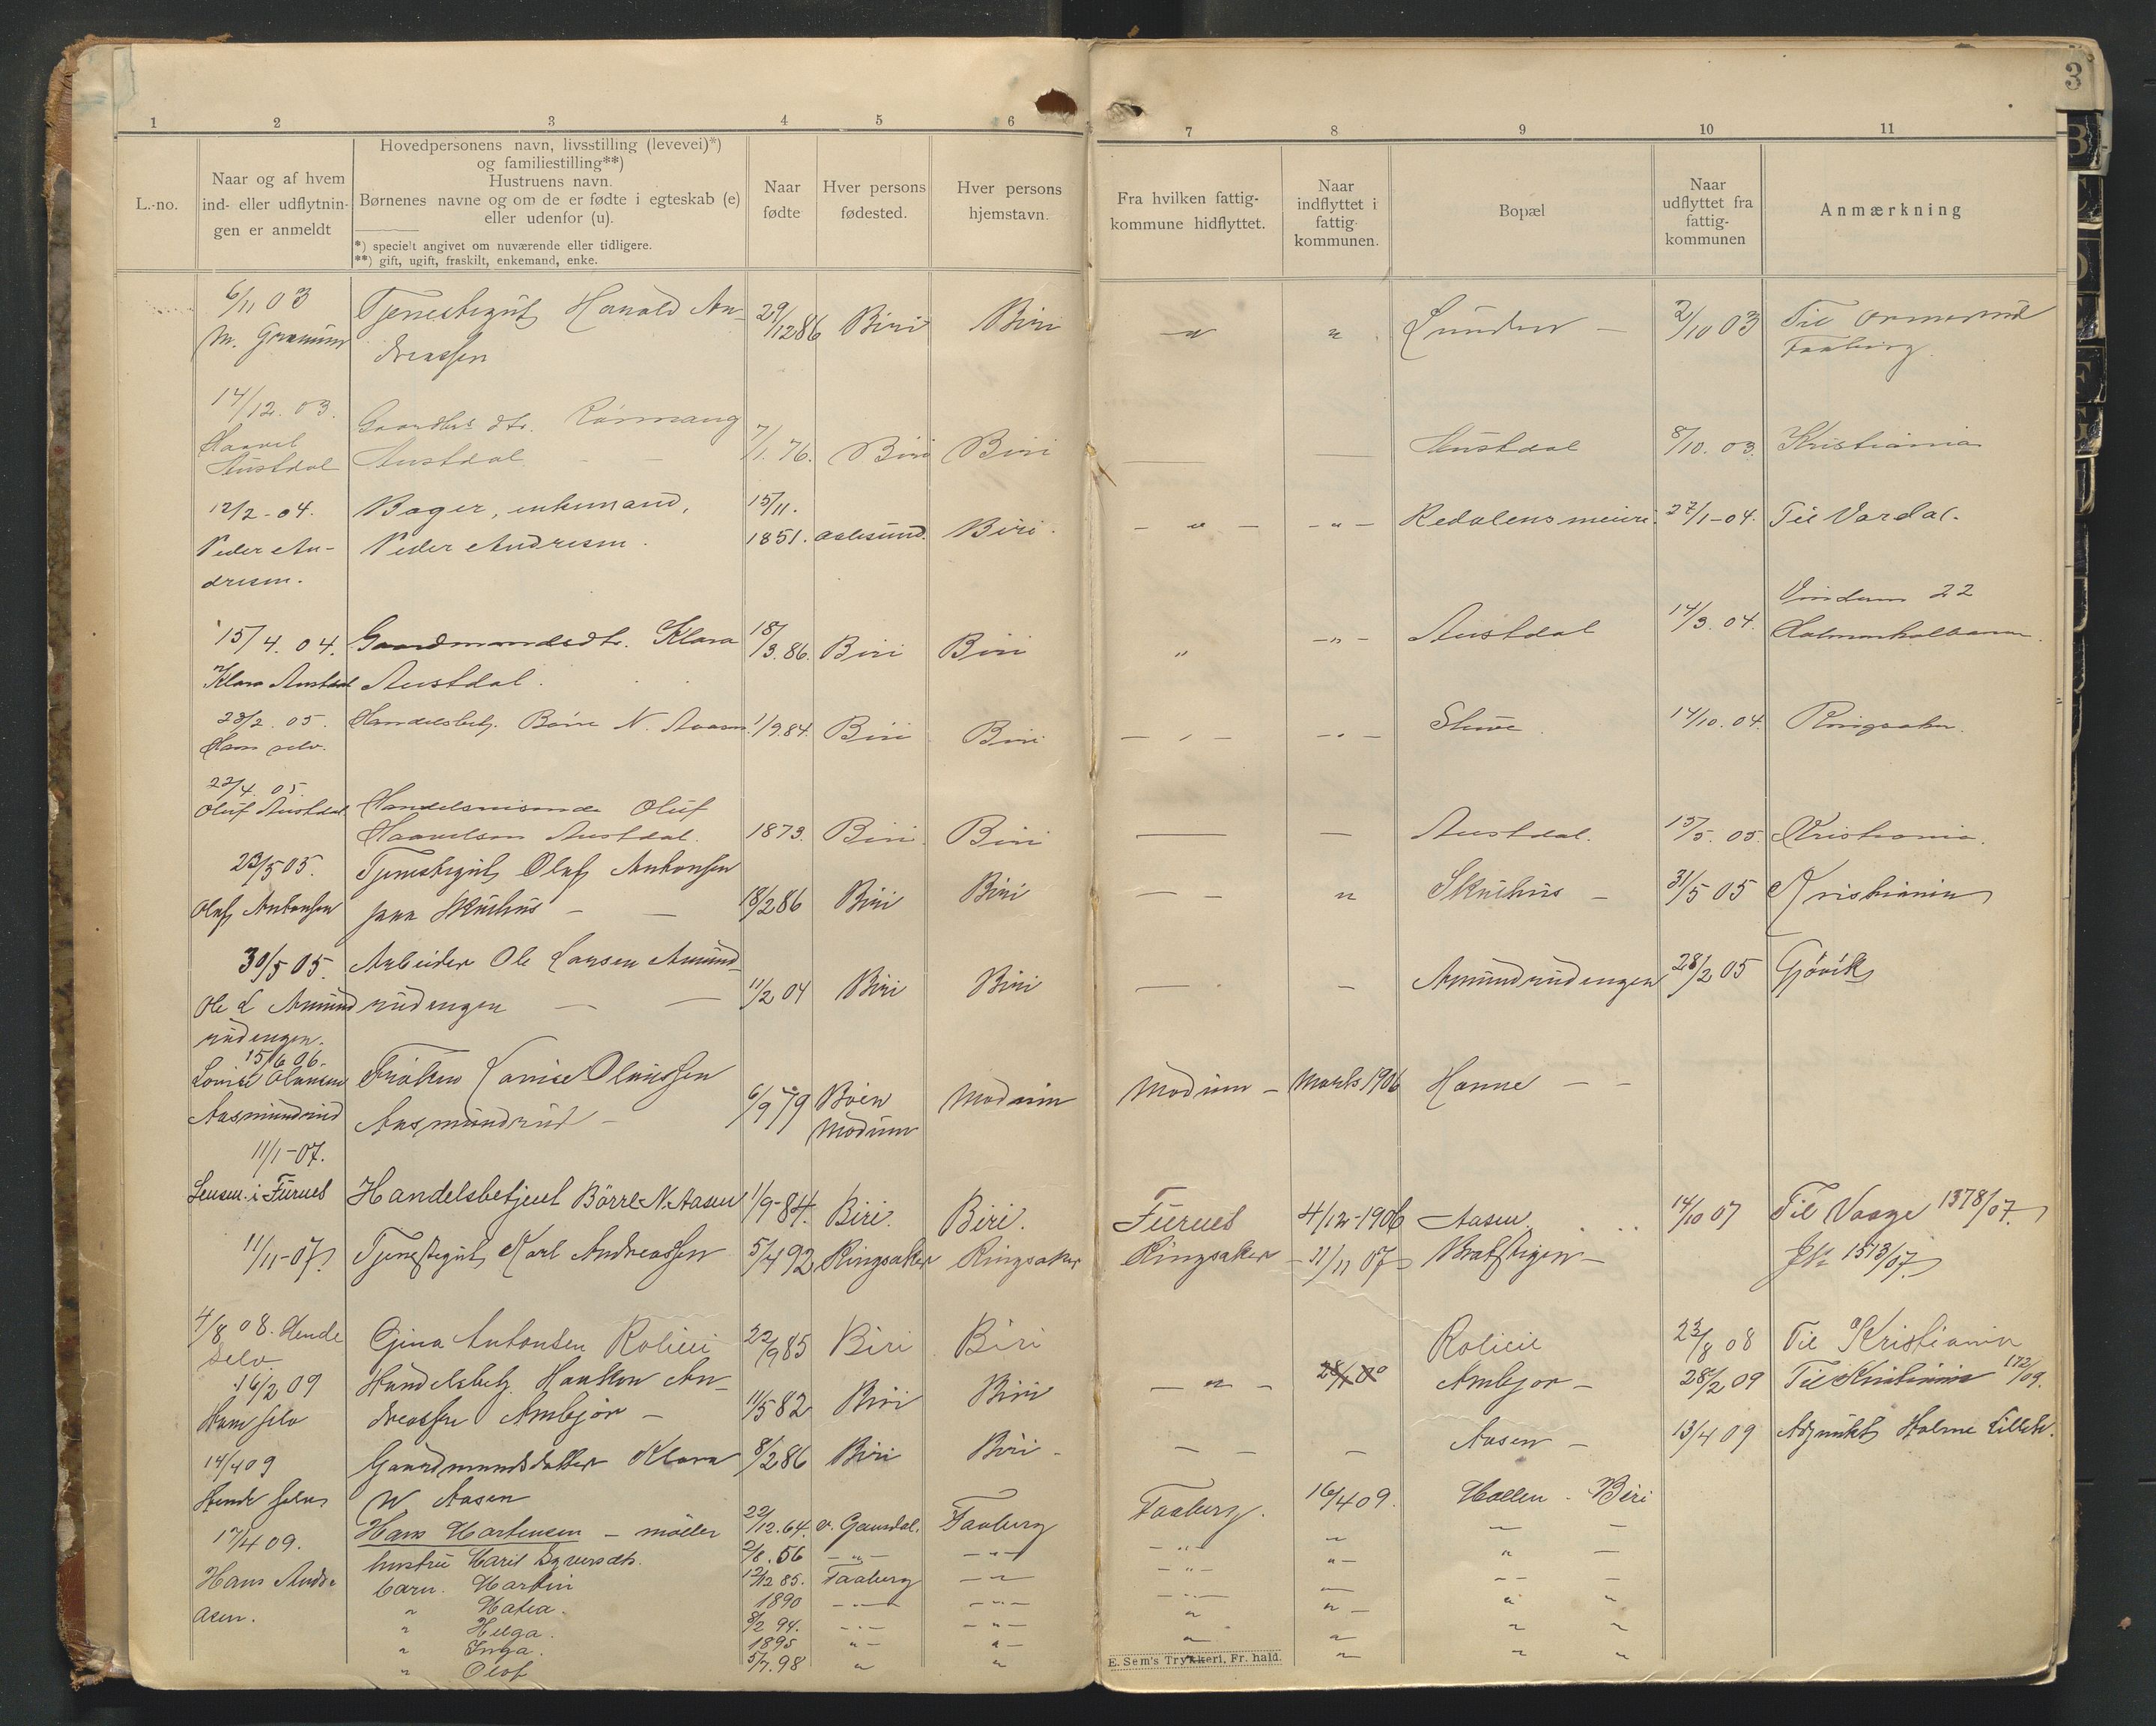 3
1 2 3 4 5 6 7 8 9 10 11
L.-no.
Naar og af hvem
ind- eller udflytnin-
gen er anmeldt
Hovedpersonens navn, livsstilling (levevei)*)
og familiestilling**)
Hustruens navn.
Børnenes navne og om de er fødte i egteskab (e)
eller udenfor (u).
*) specielt angivet om nuværende eller tidligere.
**) gift, ugift, fraskilt, enkemand, enke.
Naar
fødte
Hver persons
fødested.
Hver persons
hjemstavn.
Fra hvilken fattig-
kommune hidflyttet.
Naar
indflyttet i
fattig-
kommunen.
Bopæl
Naar
udflyttet fra
fattig-
kommunen
Anmærkning
6/11 03 Tjenestegut Harald An- 29/12 86 Biri Biri " " Lunden - 2/10 03 Til
M. dreassen Faaberg.
14/12. 03. Gaardbr. dtr. 7/1. 76. Biri Biri — — Austdal 8/10. 03. Kristiania
Haavel Austdal
Austdal
12/2-04. Bager, enkemand, 15/11. 1851. Aalesund. Biri. - " - - " - Redalens meieri. 27/1-04. Til Vardal.
Peder An- Peder Andresen.
dresen.
15/4. 04. Gaardmandsdtr. Klara 18/3. 86. Biri Biri " - " - Austdal 14/3. 04. 22
Klara Austdal Austdal.
23/2. 05. Handelsbetj. Børre N. Aasen 1/9 84. Biri Biri - " - - " - Stuve 14/10. 04. Ringsaker.
Ham selv.
22/4. 05.
Oluf Austdal Handelsreisende Oluf
Haavelsen Austdal. 1873. Biri. Biri — — Austdal. 15/5. 05. Kristiania.
23/5 05. Tjenestegut Olaf Antonsen
Olaf Antonsen Skuhus — — 18/2 86 Biri Biri — — " Skuhus — 31/5 05 Kristiania
30/5 05. Arbeider Ole Larsen Amund-
Ole L Amund rudengen — — 11/2 04 Biri Biri — — Amundrudengen 28/2 05 Gjøvik
rudengen.
15/6 06.
Louise Olausen Frøken Louise Olaussen 6/9 79 Modum Modum - Marts 1906 Hanne — -
Aasmundrud Aasmundrud - Modum
11/1-07.
Lensm. i Furnes Handelsbetjent Børre N. Aasen 1/9-84. Biri. Biri. Furnes 4/12-1906 Aasen. 14/10 07 Til Vaage 1378/07.
11/11-07. Tjenestegut Karl Andreassen 5/4 92 Ringsaker Ringsaker Ringsaker - 11/11 07 - 1513/07.
4/8 08. Hende Gina Antonsen Rolien 22/9 85 Biri Biri Rolien 23/8 08 Til Kristiania
selv.
16/2 09 Handelsbetj. An- - " - Ambjør - 28/2 09 Til Kristiania 172/09.
Ham selv dreassen Ambjør — 11/5 82 Biri Biri
14/4 09 Gaardmandsdatter Klara 8/2 86 Biri Biri - — — — Aasen - 13/4 09 Adjunkt Holme Lilleh.
Hende selv N Aasen
17/4 09. Hans Martensen - møller 22/12. 64. ø. Gausdal. Faaberg Faaberg. 16/4 09. Biri
hustru Marit Syversdtr. 2/8. 56 - " - - " - - " - " -
Hans Andre barn. Martin 12/12 85. Faaberg
asen. " 1890
" Helga. 8/2 94.
" Inga. 1895
" Olof 5/7. 98
E. Sem's Trykkeri, Fr. hald.
B
C
D
F
G